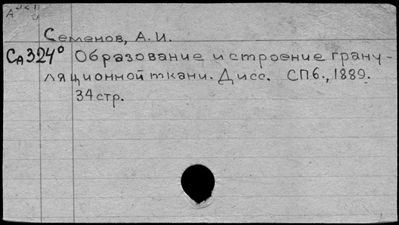 Семенов, А. И.
Са324° Образование и строение грану-
ляционной ткани. Дисс. СПб., 1889.
34 стр.